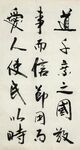 道千乘之國敬
事而信節用而
愛人使民以時